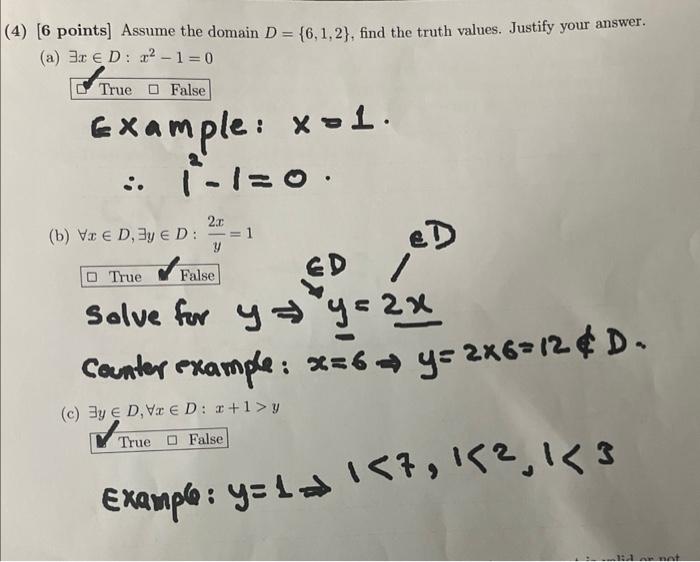 (4) [6 points] Assume the domain D = {6, 1, 2}, find the truth values. Justify your answer.
(a) ∃x ∈ D : x² − 1 = 0
☑ True ☐ False
Example: x = 1.
∴ 1² - 1 = 0.
(b) ∀x ∈ D, ∃y ∈ D : 2x/y = 1
☐ True ☑ False
∈D ∈D
Solve for y ⇒ y = 2x
Counter example: x=6 ⇒ y= 2×6=12 ∉ D.
(c) ∃y ∈ D, ∀x ∈ D : x + 1 > y
☑ True ☐ False
Example: y=1 ⇒ 1<7, 1<2, 1<3
valid or not